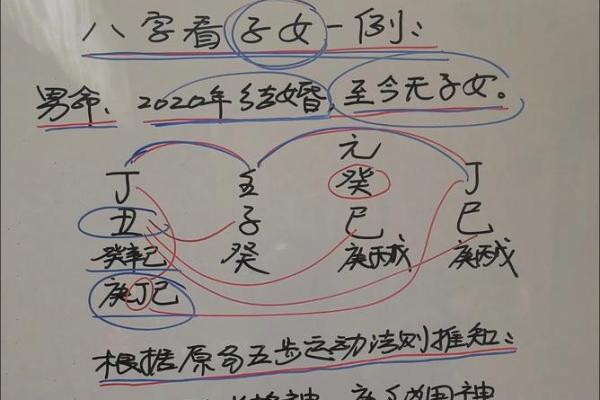 八字看子女一例:
男命、2020年结婚,至今无子女。
元
丁 壬 癸 丁
丑 子 巳 巳
癸辛己 癸 庚丙戊 庚丙戊
庚丁己
根据原局五步运动法则推知: